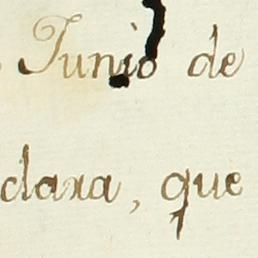 Junio de
clara, que